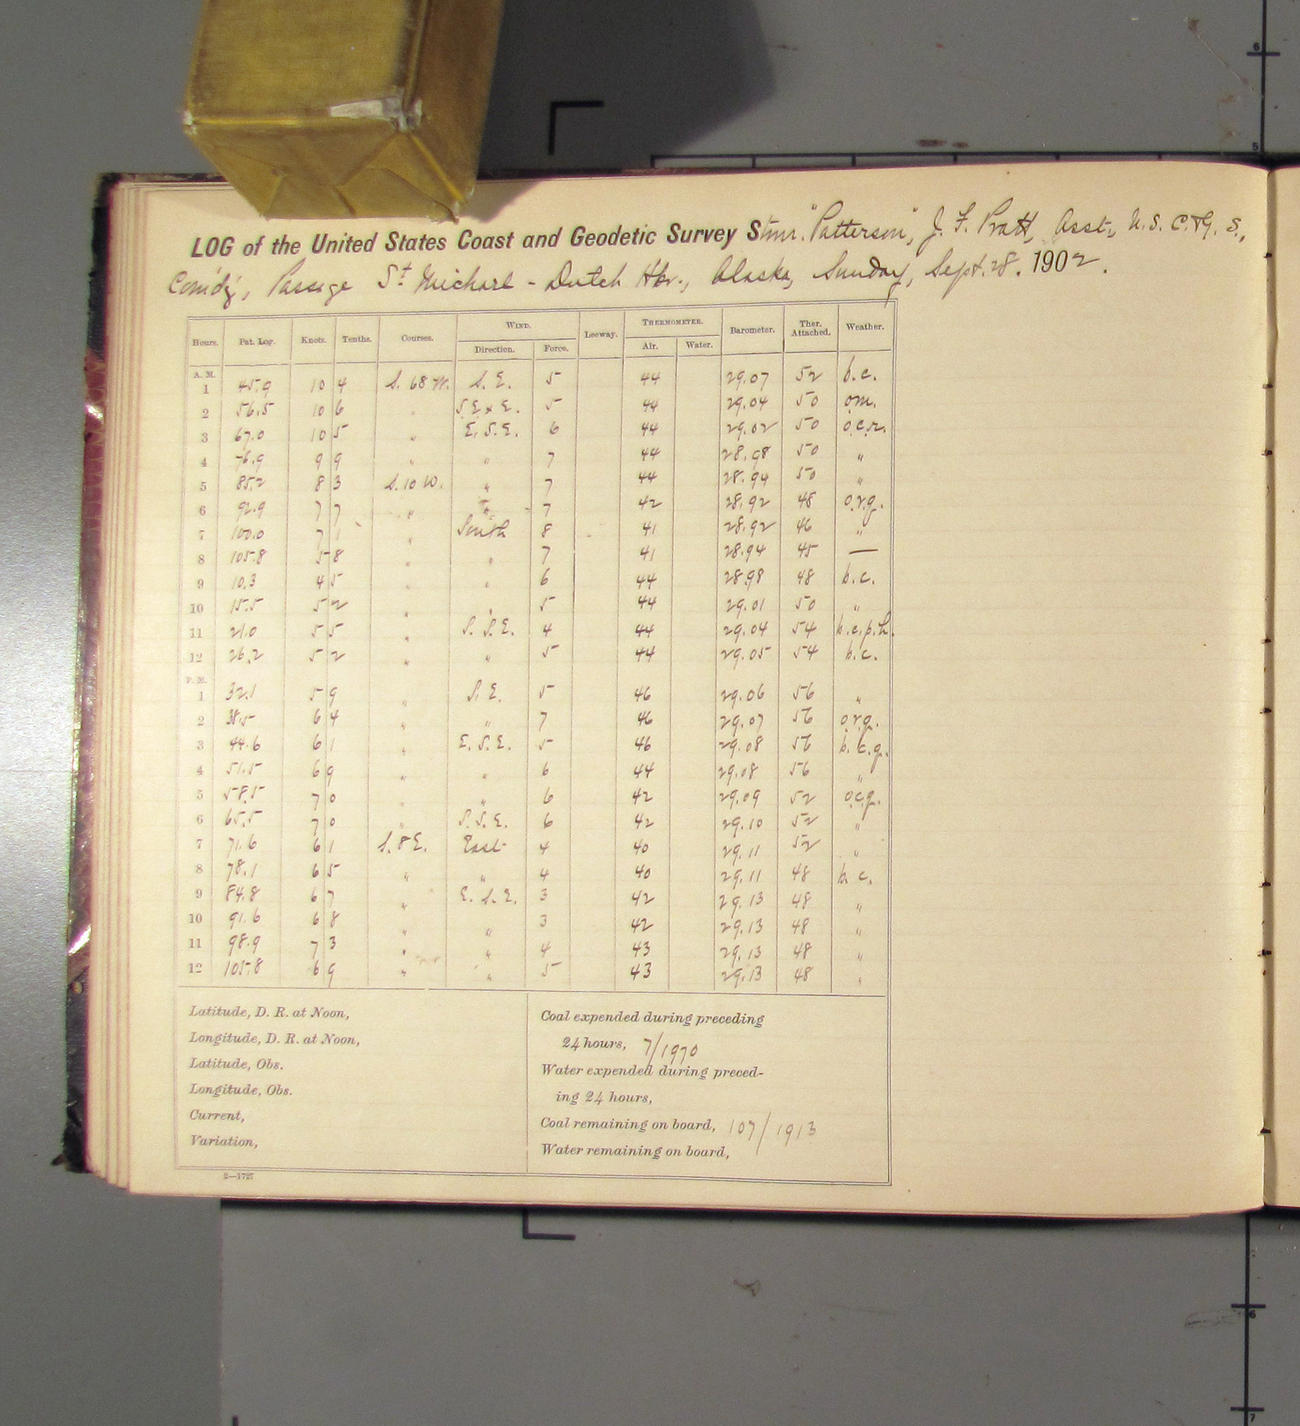 LOG of the United States Coast and Geodetic Survey Stmr. "Patterson", J. F. Pratt, Asst., U.S. C. & G. S.,
Com'd'g, Passage St Michael - Dutch Hbr., Alaska, Sunday, Sept. 28. 1902.
Hours. Pat. Log. Knots. Tenths. Courses. WIND. Leeway. THERMOMETER. Barometer. Ther. Attached. Weather.
Direction. Force. Air. Water.
A. M.
1 45.9 10 4 S. 68 W. S. E. 5 44 29.07 52 b.c.
2 56.5 10 6 " S.E. x E. 5 44 29.04 50 o.m.
3 67.0 10 5 " E. S. E. 6 44 29.02 50 o.c.r.
4 76.9 9 9 " " 7 44 28.98 50 "
5 85.2 8 3 S. 10 W. " 7 44 28.94 50 "
6 92.9 7 7 " " 7 42 28.92 48 o.r.q.
7 100.0 7 1 " South 8 41 28.92 46 "
8 105.8 5 8 " " 7 41 28.94 45 —
9 10.3 4 5 " " 6 44 28.98 48 b.c.
10 15.5 5 2 " " 5 44 29.01 50 "
11 21.0 5 5 " S. S. E. 4 44 29.04 54 b.c.p.h.
12 26.2 5 2 " " 5 44 29.05 54 b.c.
P. M.
1 32.1 5 9 " S. E. 5 46 29.06 56 "
2 38.5 6 4 " " 7 46 29.07 56 o.r.q.
3 44.6 6 1 " E. S. E. 5 46 29.08 56 b.c.q.
4 51.5 6 9 " " 6 44 29.08 56 "
5 58.5 7 0 " " 6 42 29.09 52 o.c.q.
6 65.5 7 0 " S. S. E. 6 42 29.10 52 "
7 71.6 6 1 S. 8 E. East 4 40 29.11 52 "
8 78.1 6 5 " " 4 40 29.11 48 b.c.
9 84.8 6 7 " E. S. E. 3 42 29.13 48 "
10 91.6 6 8 " " 3 42 29.13 48 "
11 98.9 7 3 " " 4 43 29.13 48 "
12 105.8 6 9 " " 5 43 29.13 48 "
Latitude, D. R. at Noon,
Longitude, D. R. at Noon,
Latitude, Obs.
Longitude, Obs.
Current,
Variation,
Coal expended during preceding
24 hours, 7/1970
Water expended during preced-
ing 24 hours,
Coal remaining on board, 107/1913
Water remaining on board,
2—1727
6
5
6
7